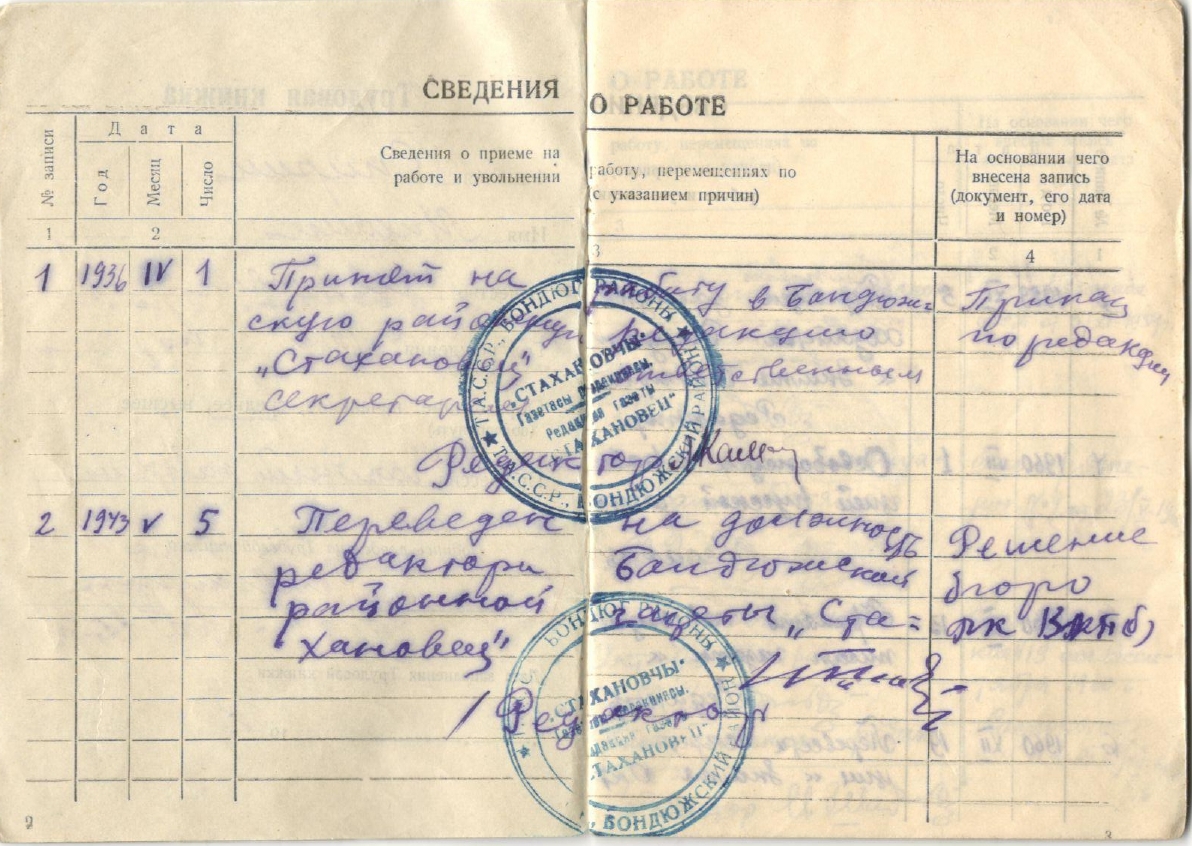 СВЕДЕНИЯ О РАБОТЕ
№ записи
Дата
Год
Месяц
Число
Сведения о приеме на работу, перемещениях по
работе и увольнении (с указанием причин)
На основании чего
внесена запись
(документ, его дата
и номер)
1 2 3 4
1 1936 IV 1 Принят на работу в Бондюж- Приказ
скую районную редакцию по редакции
„Стахановец" ответственным
секретарем
Редактор
2 1943 V 5 Переведен на должность Решение
редактора Бондюжской бюро
районной газеты „Ста= РК ВКП(б)
хановец"
Редактор
Т.А.С.С.Р., БОНДЮГ РАЙОНЫ
„СТАХАНОВЧЫ"
Газетасы редакциясы.
Редакция газеты
„СТАХАНОВЕЦ"
Т.А.С.С.Р., БОНДЮЖСКИЙ РАЙОН
БОНДЮГ РАЙОНЫ
„СТАХАНОВЧЫ"
Газетасы редакциясы.
Редакция газеты
„СТАХАНОВЕЦ"
БОНДЮЖСКИЙ РАЙОН
2
3